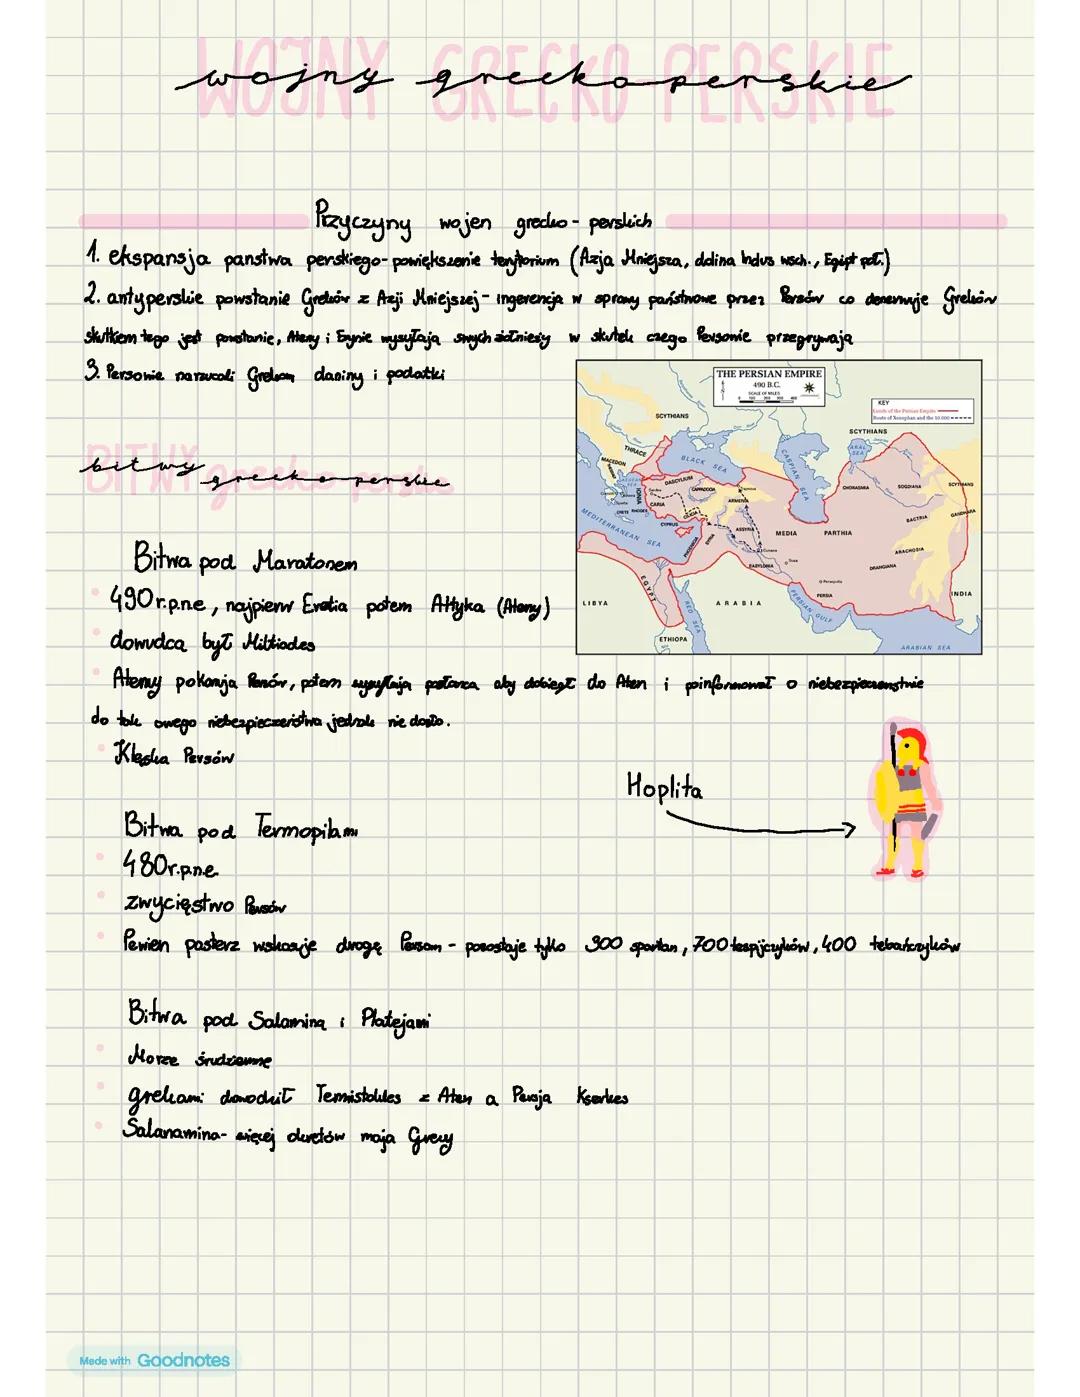 WOJNY GRECKO-PERSKIE
wojny grecko perskie
Przyczyny wojen grecko-perskich
1. ekspansja panstwa perskiego-powiększenie terytorium (Azja Mniejsza, dolina Indus wsch., Egipt poł.)
2. antyperskie powstanie Greków z Azji Mniejszej - ingerencja w sprawy państwowe przez Persów co denerwuje Greków
skutkiem tego jest powstanie, Ateny i wysyłają swych żołnierzy w skutek czego Persowie przegrywają
3. Persowie narzucali Grekom daniny i podatki
THE PERSIAN EMPIRE
490 B.C.
SCALE OF MILES
0 100 200 300 400
KEY
Limits of the Persian Empire
Route of Xenophon and the 10.000
SCYTHIANS
SCYTHIANS
ARAL SEA
THRACE
BLACK SEA
CASPIAN SEA
MACEDON
SCYTHIANS
DASCYLIUM
CHORASMIA
SOGDIANA
AEGEAN SEA
IONIA
CAPPADOCIA
ARMENIA
GANDHARA
CARIA
BACTRIA
CRETE
RHODES
CILICIA
CYPRUS
ASSYRIA
MEDIA
PARTHIA
MEDITERRANEAN SEA
PHOENICIA
SYRIA
Cunaxa
ARACHOSIA
BABYLONIA
Susa
DRANGIANA
EGYPT
Persepolis
PERSIA
INDIA
LIBYA
ARABIA
PERSIAN GULF
RED SEA
ETHIOPA
ARABIAN SEA
BITWY grecko-perskie
bitwy grecko-perskie
Bitwa pod Maratonem
490r.p.ne, najpierw Eretia potem Attyka (Ateny)
dowudca był Miltiades
Ateny pokonują Persów, potem wysyłają posłańca aby dobiegł do Aten i poinformował o niebezpieczenstwie
do tak owego niebezpieczeństwa jednak nie doszło.
Klęska Persów
Hoplita
Bitwa pod Termopilami
480r.p.ne.
zwycięstwo Persów
Pewien pasterz wskazuje drogę Persom - pozostaje tylko 300 spartan, 700 tespijczyków, 400 tebańczyków
Bitwa pod Salaminą i Platejami
Morze śrudziemne
grekami dowodził Temistokles z Aten a Persją Kserkses
Salanamina- więcej okrętów mają Grecy
Made with Goodnotes